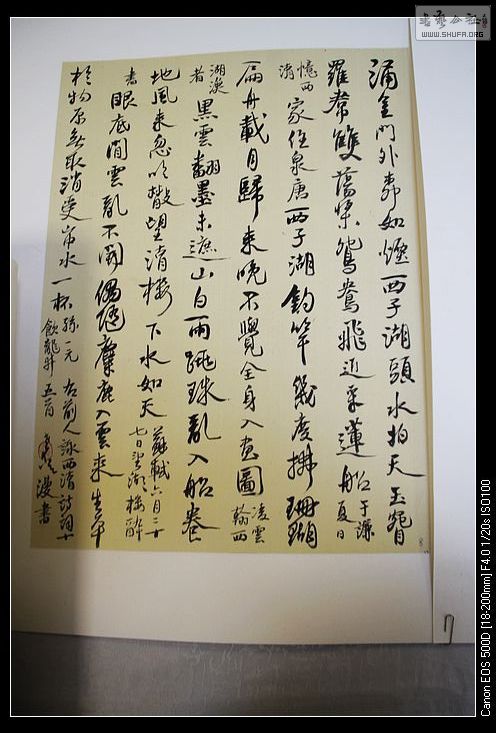 涌金門外如煙西子湖頭水拍天玉臂
羅裳雙蕩槳鴛鴦飛近采蓮船 于謙 夏日
憶西湖 家住泉唐西子湖釣竿幾度拂珊瑚
扁舟載月歸來晚不覺全身入畫圖 凌雲翰西
湖漁者 黑雲翻墨未遮山白雨跳珠亂入船卷
地風來忽吹散望湖樓下水如天 蘇軾六月二十七日望湖樓醉
書 眼底閒雲亂不開偶隨麋鹿入雲來生平
於物原無取消受山中水一杯 孫一元 飲龍井 右前人詠西湖詩詞十五首 漫書
書藝公社
WWW.SHUFA.ORG
Canon EOS 500D [18-200mm] F4.0 1/20s ISO100